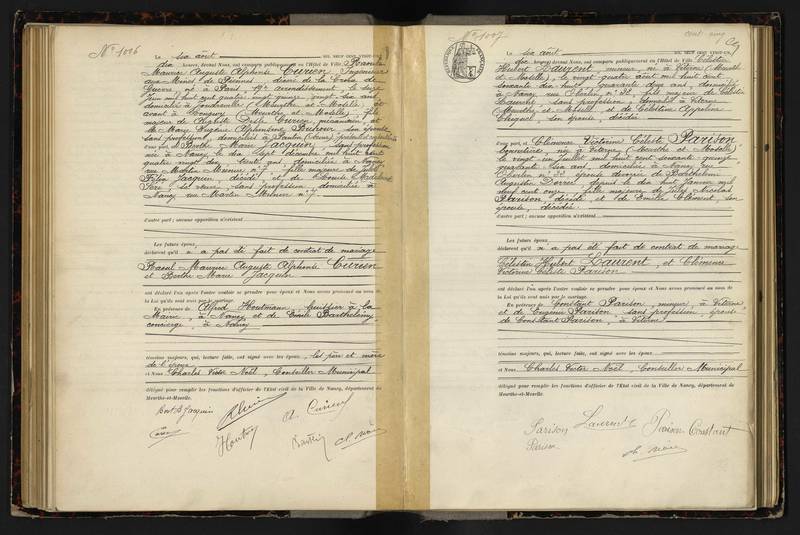 N° 1006
Le six août mil neuf cent vingt-un,
dix heures, devant Nous, ont comparu publiquement en l'Hôtel de Ville Raoul
Maurice Auguste Alphonse Curien, Ingénieur
aux Mines de Piennes, décoré de la Croix de
Guerre, né à Paris, 19e arrondissement, le seize
juin mil huit cent quatre vingt quinze, vingt six ans,
domicilié à Joudreville (Meurthe et Moselle), et
avant à Longwy (Meurthe et Moselle), fils
majeur de Curien, mécanicien, et
de Marie Eugénie Alphonsine, son épouse,
sans profession, domiciliés à Pantin (Seine),
d'une part, et Berthe Marie Jacquin, sans profession,
née à Nancy, le dix sept décembre mil huit cent
quatre vingt dix, trente ans, domiciliée à Nancy,
rue Martin Meunier n° 7, fille majeure de Jules
Jacquin, décédé, et de
sa veuve, sans profession, domiciliée à
Nancy, rue Martin Meunier n° 7.
d'autre part; aucune opposition n'existant
Les futurs époux
déclarent qu'il n'a pas été fait de contrat de mariage
Raoul Maurice Auguste Alphonse Curien
et Berthe Marie Jacquin
ont déclaré l'un après l'autre vouloir se prendre pour époux et Nous avons prononcé au nom de
la Loi qu'ils sont unis par le mariage.
En présence de Alfred Houtmann, huissier à la
Mairie, à Nancy, et de Emile Barthélemy,
concierge, à Nancy
témoins majeurs, qui, lecture faite, ont signé avec les époux, les père et mère
de l'époux
et Nous Charles Victor Noël, Conseiller Municipal
délégué pour remplir les fonctions d'officier de l'Etat civil de la Ville de Nancy, département de
Meurthe-et-Moselle.
Jacquin
Curien
N° 1007
cent cinq
Le six août mil neuf cent vingt-un,
dix heures, devant Nous, ont comparu publiquement en l'Hôtel de Ville Célestin
Hubert Laurent, mineur, né à Viterne (Meurthe
et Moselle), le vingt quatre août mil huit cent
soixante dix huit, quarante deux ans, domicilié
à Nancy, rue Charles n° 33, fils majeur de Célestin
Laurent, sans profession, domicilié à Viterne
(Meurthe et Moselle), et de Célestine Appoline
son épouse, décédée
d'une part, et Clémence Victorine Céleste Parison,
née à Viterne (Meurthe et Moselle),
le vingt un juillet mil huit cent soixante quinze,
quarante six ans, domiciliée à Nancy, rue
n° 33, épouse divorcée de Barthélemi
Augustin, depuis le dix huit janvier mil
neuf cent onze, fille majeure de Jules Nicolas
Parison, décédé, et de Emélie Clément, son
épouse, décédée.
d'autre part; aucune opposition n'existant
Les futurs époux
déclarent qu'il n'a pas été fait de contrat de mariage
Célestin Hubert Laurent, et Clémence
Victorine Céleste Parison
ont déclaré l'un après l'autre vouloir se prendre pour époux et Nous avons prononcé au nom de
la Loi qu'ils sont unis par le mariage.
En présence de Constant Parison, à Viterne
et de Eugénie Parison, sans profession, épouse
de Constant Parison, à Viterne
témoins majeurs, qui, lecture faite, ont signé avec les époux
et Nous Charles Victor Noël, Conseiller Municipal
délégué pour remplir les fonctions d'officier de l'Etat civil de la Ville de Nancy, département de
Meurthe-et-Moselle.
Parison Laurent C Parison Constant
Parison